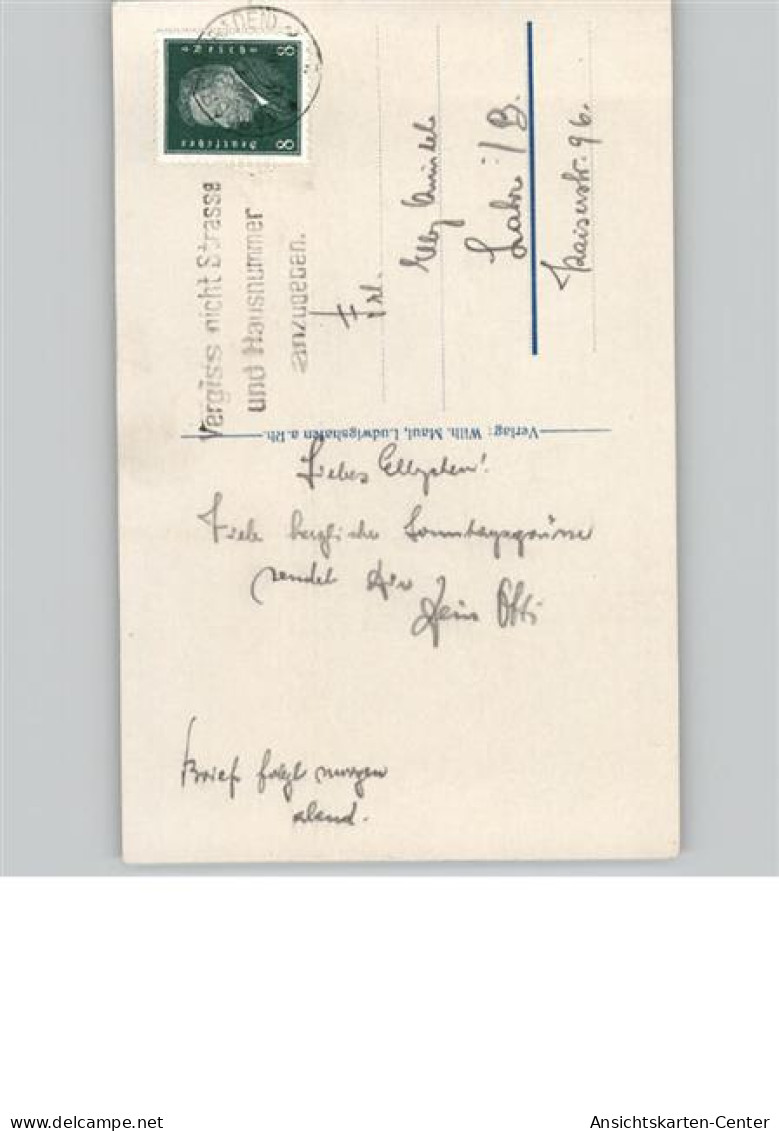 8 8
Deutsches
Vergiss nicht Strasse
und Hausnummer
anzugeben.
Frl.
Elly
Lahr i/B.
Kaiserstr. 96.
Verlag: Wilh. Maul, Ludwigshafen a. Rh.
Liebes Ellychen!
Viele herzliche Sonntagsgrüsse
sendet Dir
Dein Otti
Brief folgt morgen
abend.
delcampe.net
Ansichtskarten-Center